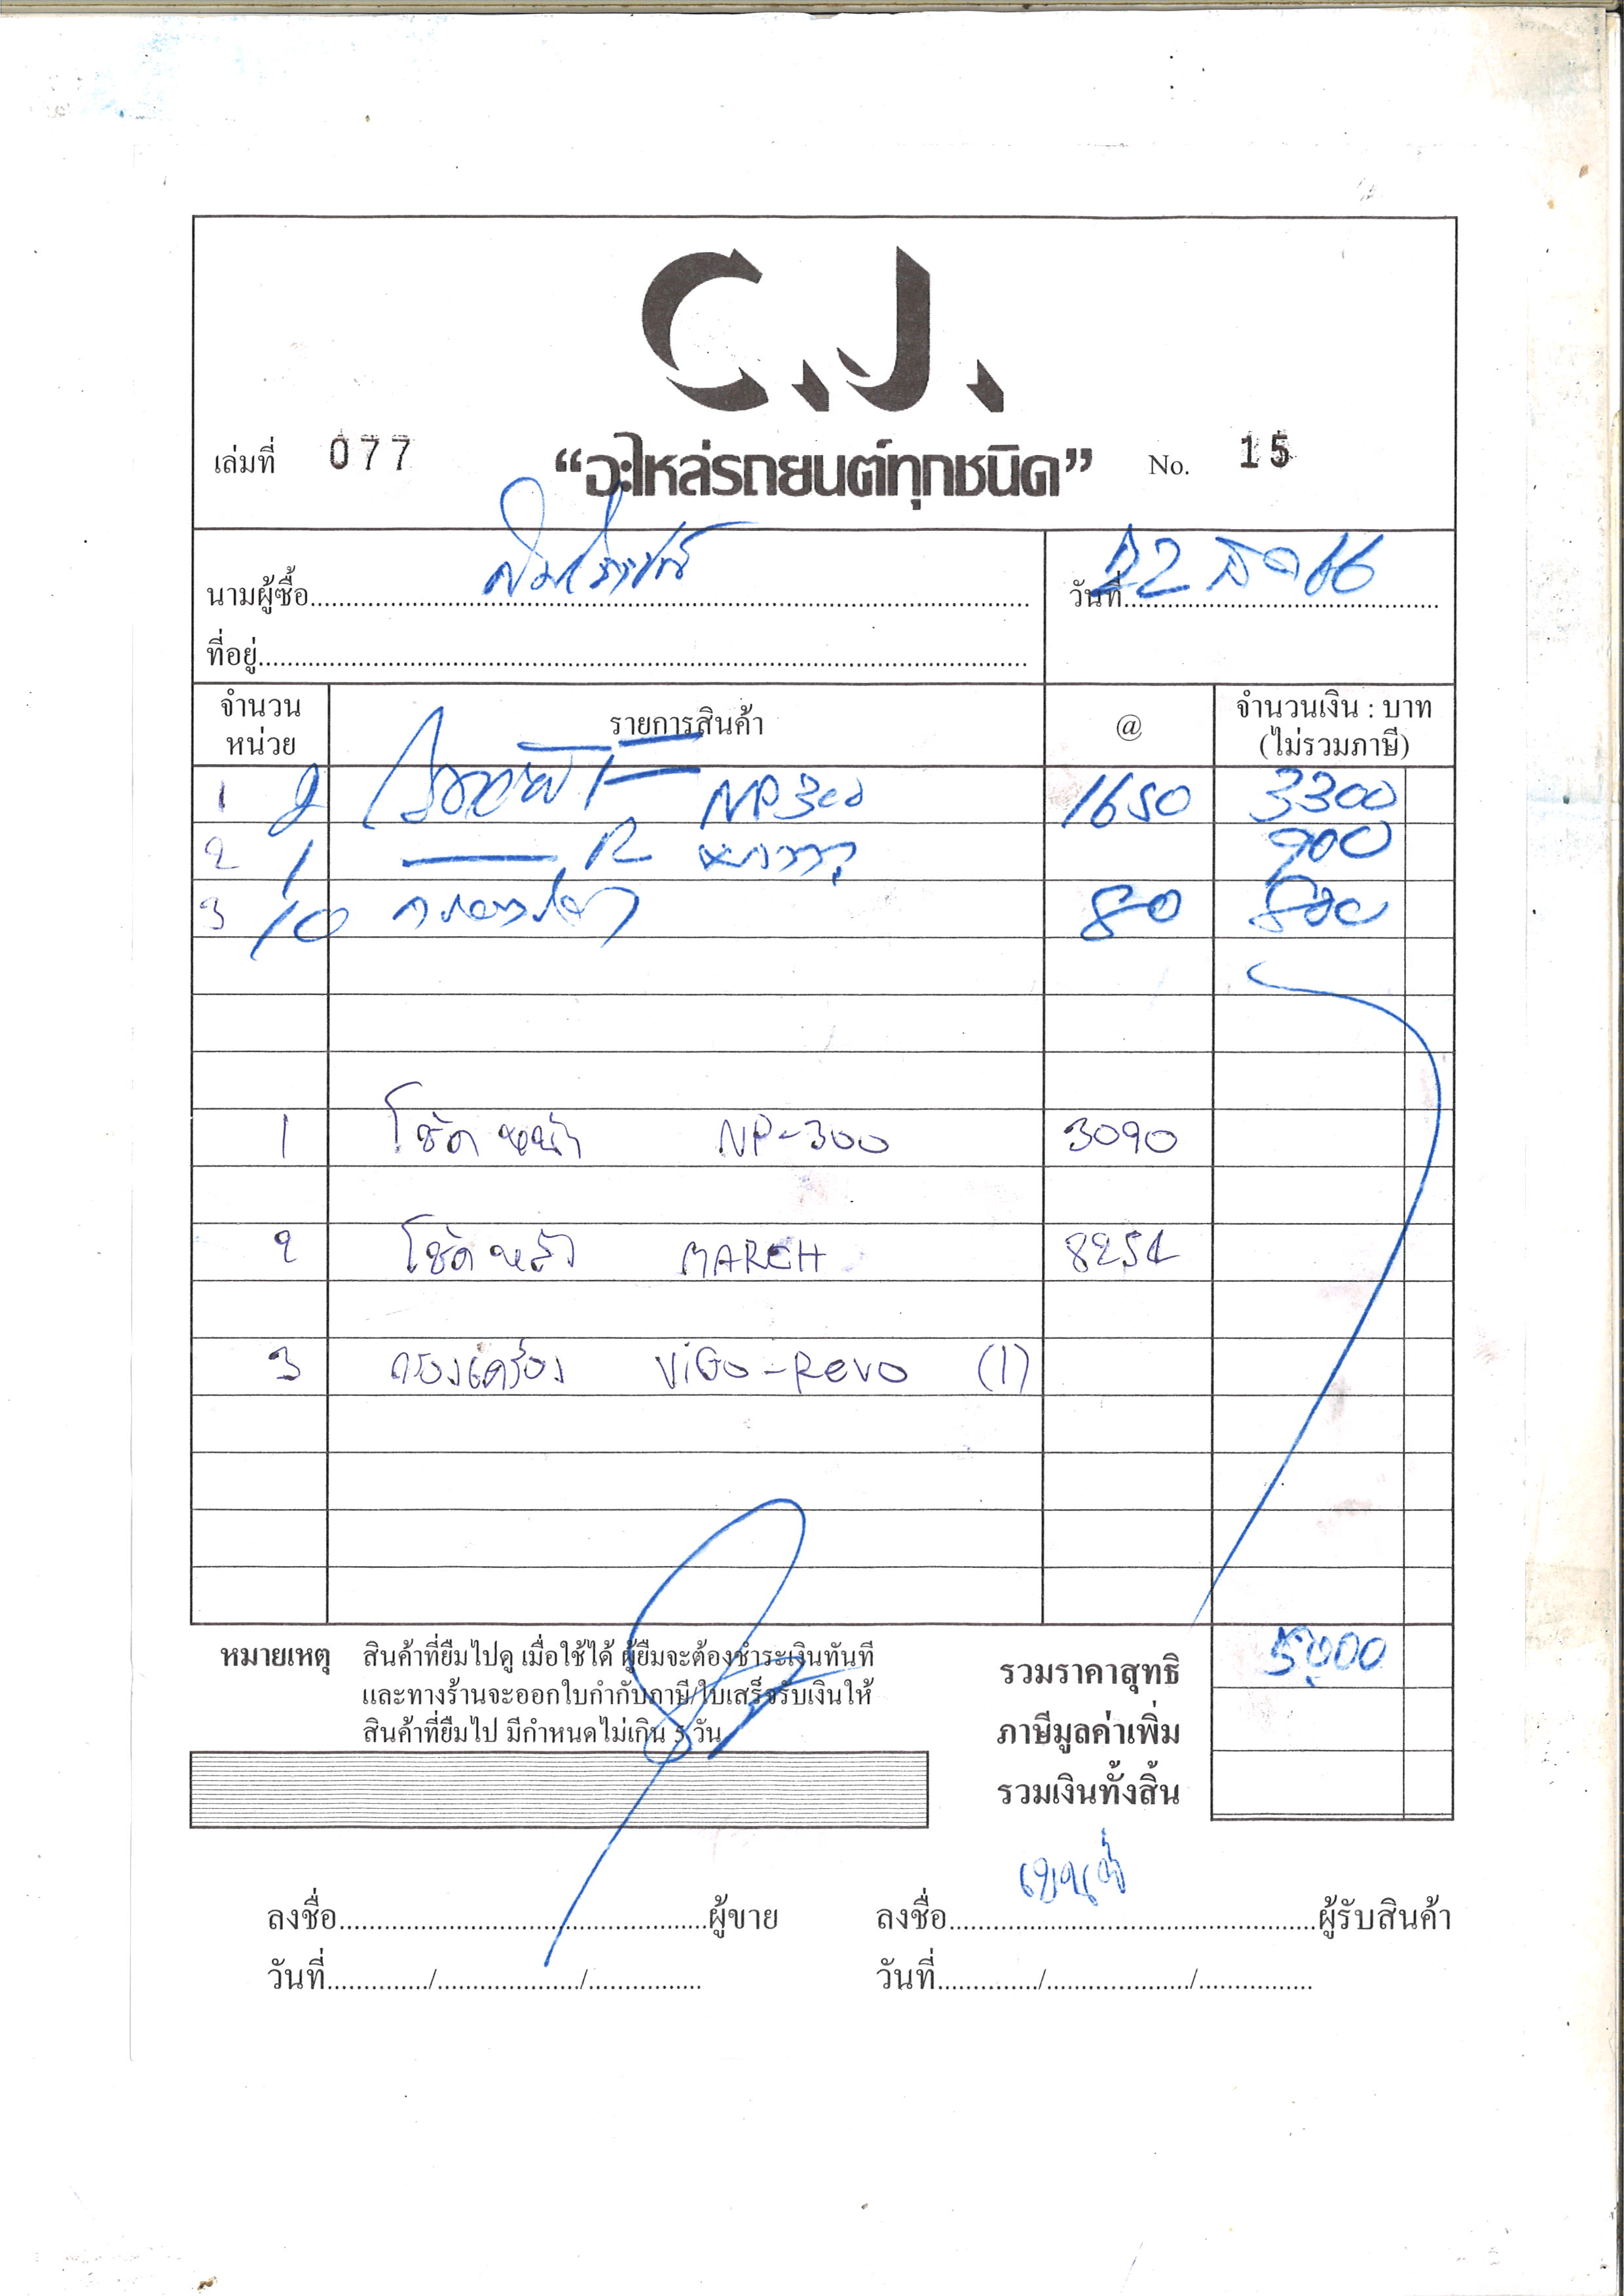 C.J.
เล่มที่ 077 “อะไหล่รถยนต์ทุกชนิด” No. 15
นามผู้ซื้อ วันที่ 22 66
ที่อยู่
จำนวนหน่วย รายการสินค้า @ จำนวนเงิน : บาท (ไม่รวมภาษี)
1 2 NP300 1650 3300
2 1 R 900
3 10 80 800
1 โช้คหน้า NP-300 3090
2 โช้คหลัง MARCH
3 กรองเครื่อง ViGo-Revo (1)
หมายเหตุ สินค้าที่ยืมไปดู เมื่อใช้ได้ ผู้ยืมจะต้องชำระเงินทันที
และทางร้านจะออกใบกำกับภาษี/ใบเสร็จรับเงินให้
สินค้าที่ยืมไป มีกำหนดไม่เกิน 5 วัน
รวมราคาสุทธิ 5000
ภาษีมูลค่าเพิ่ม
รวมเงินทั้งสิ้น
ลงชื่อ ผู้ขาย ลงชื่อ ผู้รับสินค้า
วันที่ / / วันที่ / /